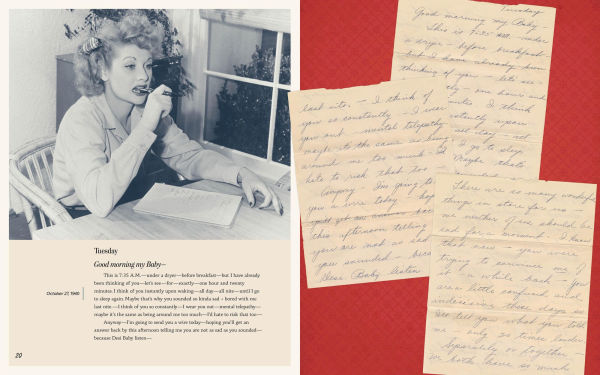 Tuesday
Good morning my Baby—
This is 7:35 A.M.—under a dryer—before breakfast—but I have already
been thinking of you—let's see—for—exactly—one hour and twenty
minutes. I think of you instantly upon waking—all day—all nite—until I go
to sleep again. Maybe that's why you sounded so kinda sad + bored with me
last nite.—I think of you so constantly—I wear you out—mental telepathy—
maybe it's the same as being around me too much—I'd hate to risk that too—
Anyway—I'm going to send you a wire today—hoping you'll get an
answer back by this afternoon telling me you are not as sad as you sounded—
because Desi Baby listen—
October 27, 1940
20
Tuesday
Good morning my Baby—
This is 7:35 AM—under
a dryer—before breakfast—
but I have already been
thinking of you—let's see—
ly—one hour and
nutes. I think
stantly upon
all day—all
I go to sleep
Maybe that's
last nite.—I think of
you so constantly—I wear
you out—mental telepathy
maybe it's the same as being
around me too much—I'd
hate to risk that too
Anyway—I'm going to
you a wire today—hop
this afternoon telling
you are not as sad
you sounded—beca
Desi Baby listen
There are so many wonderful
things in store for us—
me neither of us should be
sad for a moment. I know
that now—you were
trying to convince me of
it a while back—you
are a little confused and
undecided these days so
let tell you what you told
me—only so tense look
Separately or together—
we both have so much